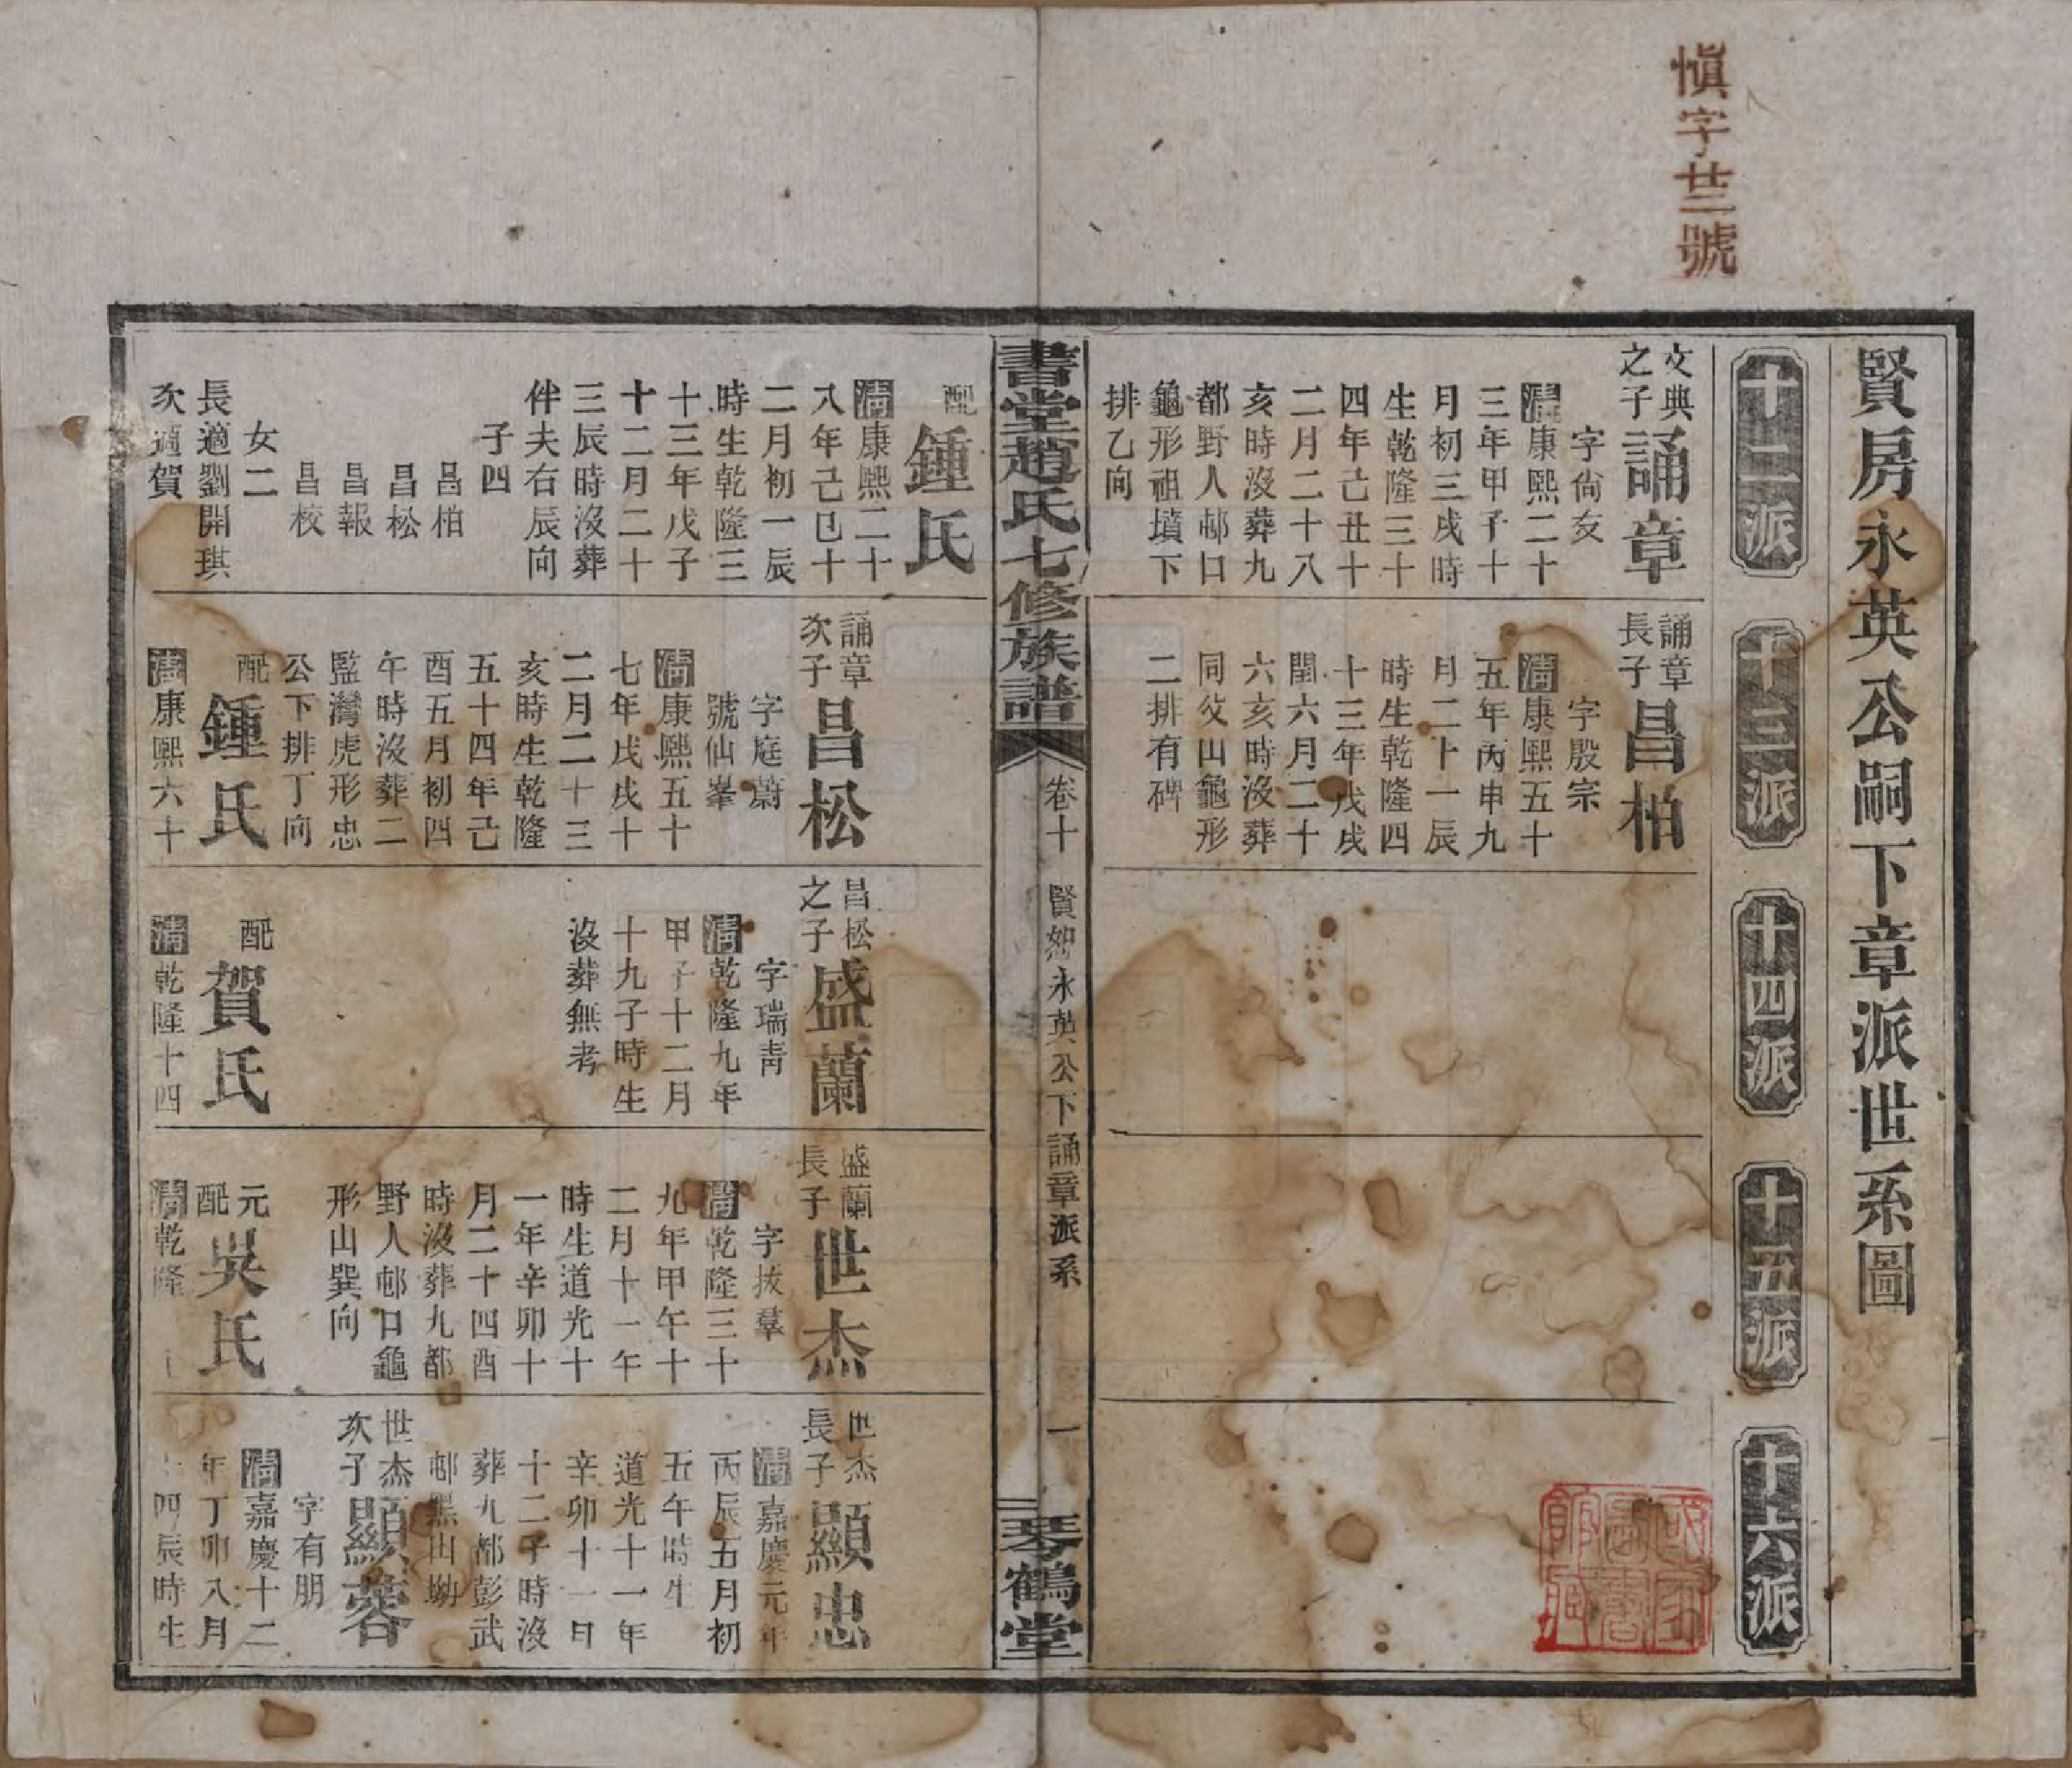 慎字廿三號
賢房永英公嗣下章派世系圖
十二派
十三派
十四派
十五派
十六派
文典
之子
誦章
字尙友
清康熙二十
三年甲子十
月初三戌時
生乾隆三十
四年己丑十
二月二十八
亥時沒葬九
都野人邨口
龜形祖墳下
排乙向
誦章
長子
昌柏
字殷宗
清康熙五十
五年丙申九
月二十一辰
時生乾隆四
十三年戊戌
閏六月二十
六亥時沒葬
同父山龜形
二排有碑
書堂趙氏七修族譜
卷十
賢恕永英公下誦章派系
一
琴鶴堂
配
鍾氏
清康熙二十
八年己巳十
二月初一辰
時生乾隆三
十三年戊子
十二月二十
三辰時沒葬
伴夫右辰向
子四
昌柏
昌松
昌報
昌校
女二
長適劉開琪
次適賀
誦章
次子
昌松
字庭蔚
號仙峯
清康熙五十
七年戊戌十
二月二十三
亥時生乾隆
五十四年己
酉五月初四
午時沒葬二
監灣虎形忠
公下排丁向
配
鍾氏
清康熙六十
昌松
之子
盛蘭
字瑞靑
清乾隆九年
甲子十二月
十九子時生
沒葬無考
配
賀氏
清乾隆十四
盛蘭
長子
世杰
字拔羣
清乾隆三十
九年甲午十
二月十一午
時生道光十
一年辛卯十
月二十四酉
時沒葬九都
野人邨口龜
形山巽向
元
配
吳氏
清乾隆
世杰
長子
顯忠
清嘉慶元年
丙辰五月初
五午時生
道光十一年
辛卯十一日
十二子時沒
葬九都彭武
邨黑山坳
世杰
次子
顯蓉
字有朋
清嘉慶十二
年丁卯八月
四辰時生